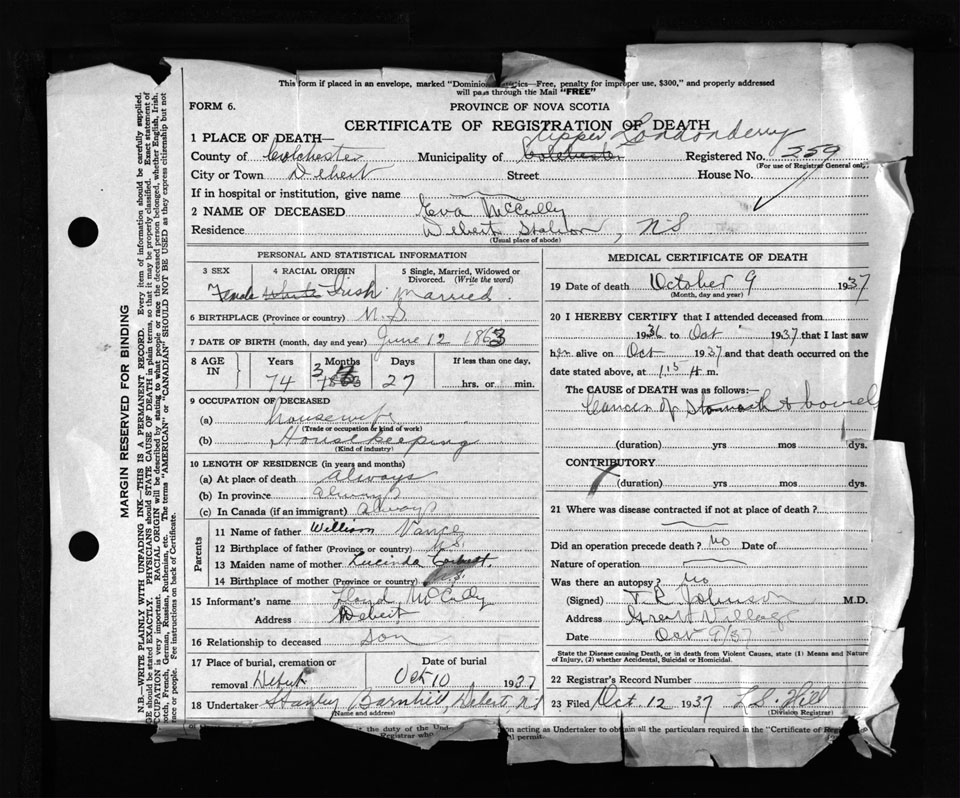 This form if placed in an envelope, marked "Dominion Statistics—Free, penalty for improper use, $300," and properly addressed
will pass through the Mail "FREE"
FORM 6.
PROVINCE OF NOVA SCOTIA
CERTIFICATE OF REGISTRATION OF DEATH
Upper Londonderry
1 PLACE OF DEATH—
County of Colchester Municipality of Colchester Registered No. 359
(For use of Registrar General only)
City or Town Debert Street House No.
If in hospital or institution, give name
2 NAME OF DECEASED Eva McCully
Residence Debert Station, NS
(Usual place of abode)
PERSONAL AND STATISTICAL INFORMATION
3 SEX 4 RACIAL ORIGIN 5 Single, Married, Widowed or Divorced. (Write the word)
Female White Irish Married
6 BIRTHPLACE (Province or country) N.S.
7 DATE OF BIRTH (month, day and year) June 12 1863
8 AGE IN Years Months Days If less than one day,
74 3 27 hrs. or min.
9 OCCUPATION OF DECEASED
(a) housewife
(Trade or occupation or kind of work)
(b) Housekeeping
(Kind of industry)
10 LENGTH OF RESIDENCE (in years and months)
(a) At place of death always
(b) In province always
(c) In Canada (if an immigrant) always
Parents
11 Name of father William Vance
12 Birthplace of father (Province or country) N.S.
13 Maiden name of mother Lucinda Corbett.
14 Birthplace of mother (Province or country) N.S.
15 Informant's name Floyd McCully
Address Debert
16 Relationship to deceased Son
17 Place of burial, cremation or removal Debert Date of burial Oct 10 1937
18 Undertaker Stanley Barnhill, Debert N.S
(Name and address)
MEDICAL CERTIFICATE OF DEATH
19 Date of death October 9 1937
(Month, day and year)
20 I HEREBY CERTIFY that I attended deceased from
1936 to Oct 1937 that I last saw
her alive on Oct 1937 and that death occurred on the
date stated above, at 1.15 A m.
The CAUSE of DEATH was as follows:—
Cancer of Stomach & bowel
(duration) yrs mos dys.
CONTRIBUTORY
(duration) yrs mos dys.
21 Where was disease contracted if not at place of death?
Did an operation precede death? No Date of
Nature of operation
Was there an autopsy? no
(Signed) T.R. Johnson M.D.
Address Great Village
Date Oct 9/37
State the Disease causing Death, or in death from Violent Causes, state (1) Means and Nature
of Injury, (2) whether Accidental, Suicidal or Homicidal.
22 Registrar's Record Number
23 Filed Oct. 12 1937 L.D. Hill
(Division Registrar)
MARGIN RESERVED FOR BINDING
N.B.—WRITE PLAINLY WITH UNFADING INK—THIS IS A PERMANENT RECORD. Every item of information should be carefully supplied.
AGE should be stated EXACTLY. PHYSICIANS should STATE CAUSE OF DEATH in plain terms, so that it may be properly classified. Exact statement of
OCCUPATION is very important. RACIAL ORIGIN will be described by stating to what people or race the deceased person belonged, whether English, Irish,
Scotch, French, German, Russian, Ruthenian, etc. The terms "AMERICAN" or "CANADIAN" SHOULD NOT BE USED as they express citizenship but not
race or people. Fee instructions on back of Certificate.
the duty of the Und acting as Undertaker to obtain all the particulars required in the "Certificate of Reg
Registrar who permit.